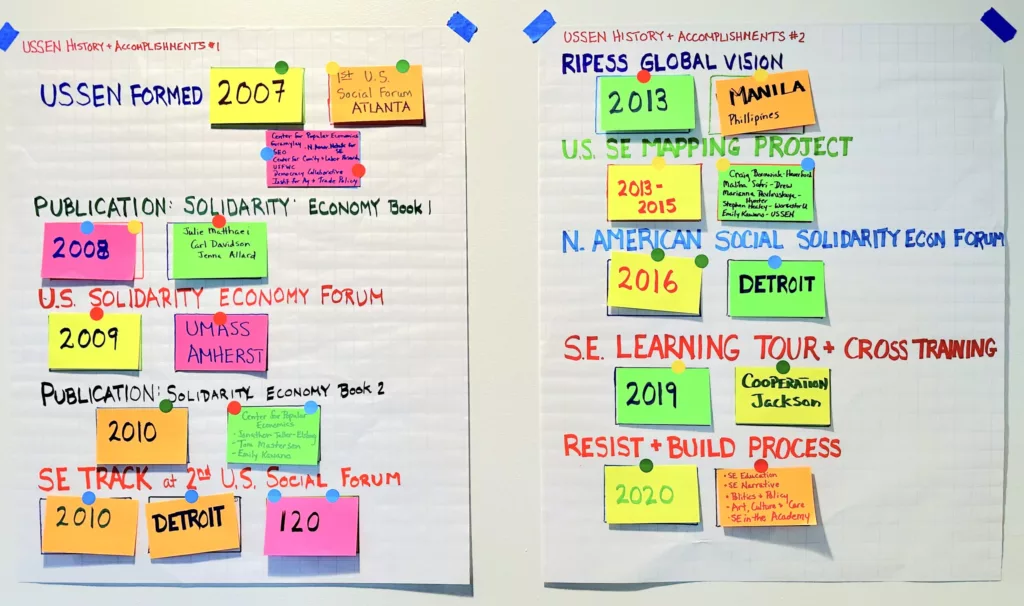 USSEN HISTORY + ACCOMPLISHMENTS #1
USSEN FORMED
2007
1ST U.S.
Social Forum
ATLANTA
Center for Popular Economics
Grassroots
SEO
Center for Comty + Labor Research
USFWC
Democracy Collaborative
Instit for Ag + Trade Policy
PUBLICATION: SOLIDARITY ECONOMY BOOK 1
2008
Julie Matthaei
Carl Davidson
Jenna Allard
U.S. SOLIDARITY ECONOMY FORUM
2009
UMASS
AMHERST
PUBLICATION: SOLIDARITY ECONOMY BOOK 2
2010
Center for Popular
Economics
Tom Masterson
- Emily Kawano
SE TRACK at 2nd U.S. SOCIAL FORUM
2010
DETROIT
120
USSEN HISTORY + ACCOMPLISHMENTS #2
RIPESS GLOBAL VISION
2013
MANILA
Phillipines
U.S. SE MAPPING PROJECT
2013-
2015
Craig Borowiak - Haverford
Maliha Safri - Drew
Marianna Pavlovskaya -
Hunter
Stephen Healy - Worcester U
Emily Kawano - USSEN
N. AMERICAN SOCIAL SOLIDARITY ECON FORUM
2016
DETROIT
S.E. LEARNING TOUR + CROSS TRAINING
2019
COOPERATION
Jackson
RESIST + BUILD PROCESS
2020
• SE Education
• SE Narrative
• Politics + Policy
- Art, Culture + Care
- SE in the Academy